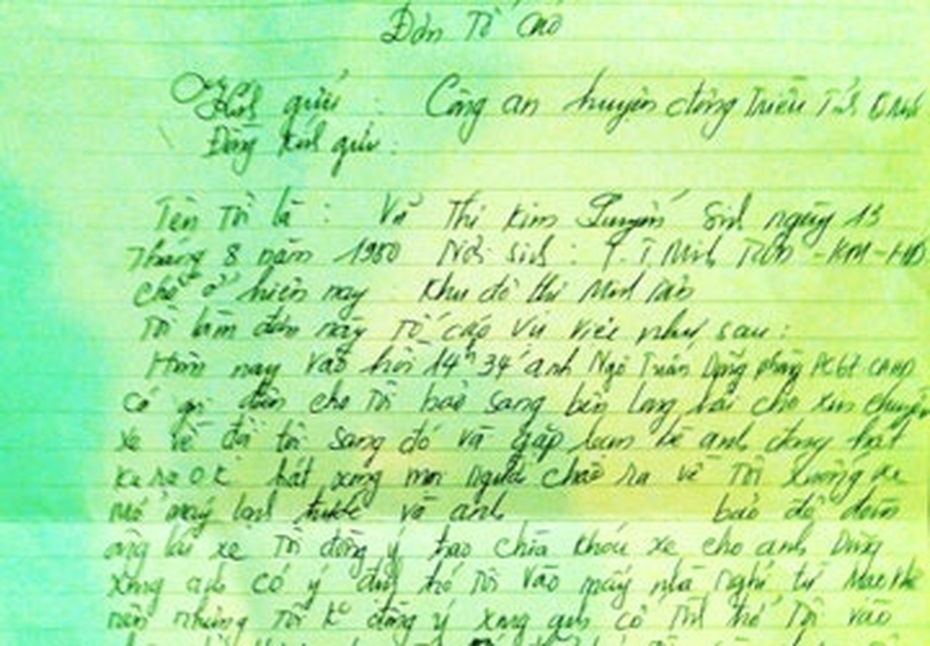 Đơn Tố cáo
Kính gửi : Công an huyện đông Triều Tỉnh
Đồng Kính gửi :
Tên Tôi là : Vũ Thị Kim Sinh ngày 13
Tháng 8 năm 1980 Nơi sinh : T.T Minh Tân -KM-HD
chỗ ở hiện nay Khu đô thị Minh Tân
Tôi làm đơn này Tố cáo Vụ việc như sau :
Hôm nay vào hồi 14h 34' anh Ngô Tuấn Dũng phòng PC67 CAHD
Có gọi điện cho Tôi bảo sang bên
xe về đã tôi sang đó và gặp bạn bè anh đang hát
Karaok hát xong mọi người chào ra về Tôi xuống xe
mở máy lạnh trước và anh bảo để
lái xe Tôi đồng ý trao chìa khóa xe cho anh Dũng
xong anh có ý chở Tôi vào mấy nhà nghỉ từ
nhưng Tôi K đồng ý xong anh cố chở Tôi vào